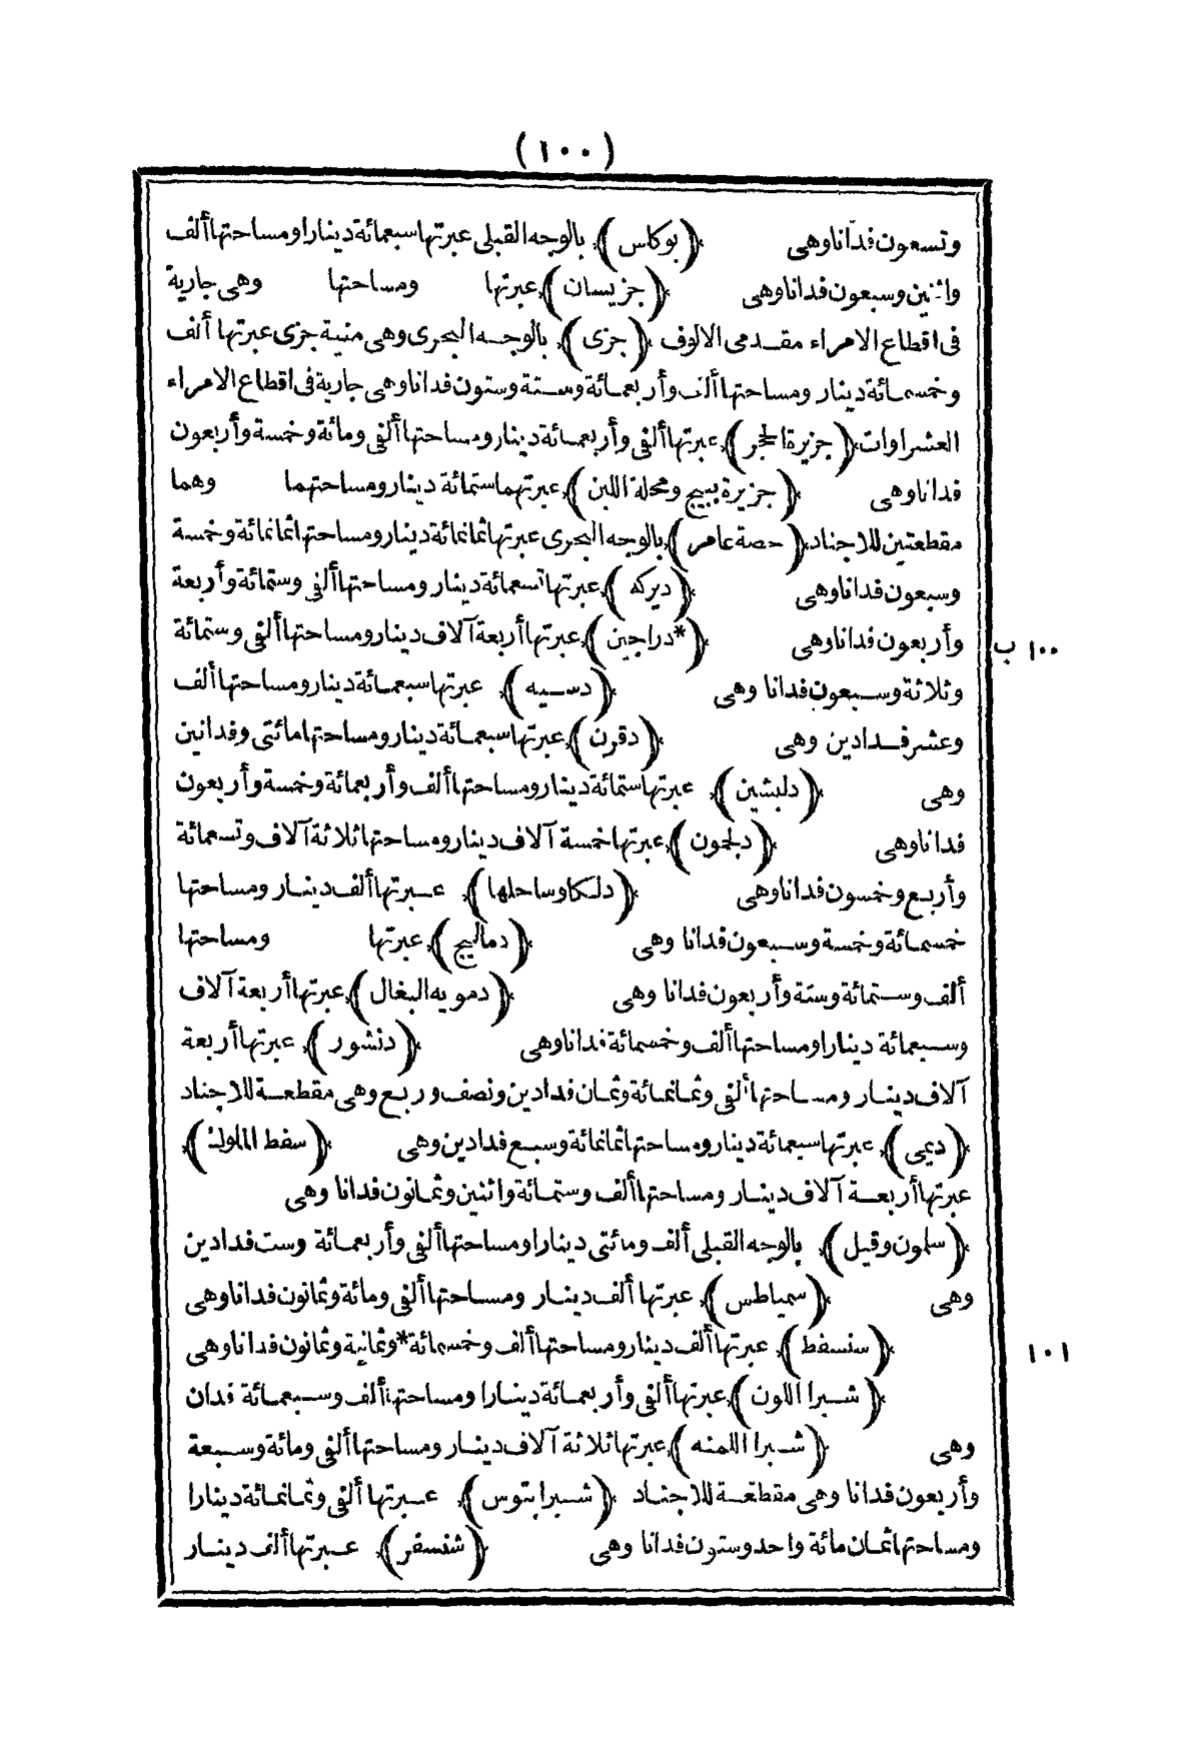 (١٠٠)
وتسعون فدانا وهى ﴿بوكاس﴾ بالوجه القبلى عبرتها سبعمائة دينار ا ومساحتها ألف
واثنين وسبعون فدانا وهى ﴿جزيسان﴾ عبرتها ومساحتها وهى جارية
فى اقطاع الامراء مقدمى الالوف ﴿جزى﴾ بالوجه البحرى وهى منية جزى عبرتها ألف
وخمسمائة دينار ومساحتها ألف وأربعمائة وستة وستون فدانا وهى جارية فى اقطاع الامراء
العشراوات ﴿جزيرة الحجر﴾ عبرتها ألفى وأربعمائة دينار ومساحتها ألفى ومائة وخمسة وأربعون
فدانا وهى ﴿جزيرة ببيج ومحلة اللبن﴾ عبرتهما ستمائة دينار ومساحتهما وهما
مقطعتين للاجناد ﴿حصة عامر﴾ بالوجه البحرى عبرتها ثمانمائة دينار ومساحتها ثمانمائة وخمسة
وسبعون فدانا وهى ﴿ديركه﴾ عبرتها تسعمائة دينار ومساحتها ألفى وستمائة وأربعة
وأربعون فدانا وهى ﴿*دراجين﴾ عبرتها أربعة آلاف دينار ومساحتها ألفى وستمائة
١٠٠ ب
وثلاثة وسبعون فدانا وهى ﴿دسيه﴾ عبرتها سبعمائة دينار ومساحتها ألف
وعشر فدادين وهى ﴿دقرن﴾ عبرتها سبعمائة دينار ومساحتها مائتى وفدانين
وهى ﴿دلبشين﴾ عبرتها ستمائة دينار ومساحتها ألف وأربعمائة وخمسة وأربعون
فدانا وهى ﴿دلجون﴾ عبرتها خمسة آلاف دينار ومساحتها ثلاثة آلاف وتسعمائة
وأربع وخمسون فدانا وهى ﴿دلكا وساحلها﴾ عبرتها ألف دينار ومساحتها
خمسمائة وخمسة وسبعون فدانا وهى ﴿دماليج﴾ عبرتها ومساحتها
ألف وستمائة وستة وأربعون فدانا وهى ﴿دمويه البغال﴾ عبرتها أربعة آلاف
وسبعمائة دينارا ومساحتها ألف وخمسمائة فدانا وهى ﴿دنشور﴾ عبرتها أربعة
آلاف دينار ومساحتها ألفى وثمانمائة وثمان فدادين ونصف وربع وهى مقطعة للاجناد
﴿ديمى﴾ عبرتها سبعمائة دينار ومساحتها ثمانمائة وسبع فدادين وهى ﴿سفط الملوك﴾
عبرتها أربعة آلاف دينار ومساحتها ألف وستمائة واثنين وثمانون فدانا وهى
﴿سلمون وقيل﴾ بالوجه القبلى ألف ومائتى دينارا ومساحتها ألفى وأربعمائة وست فدادين
وهى ﴿سمياطس﴾ عبرتها ألف دينار ومساحتها ألفى ومائة وثمانون فدانا وهى
﴿سنسفط﴾ عبرتها ألف دينار ومساحتها ألف وخمسمائة *وثمانية وثمانون فدانا وهى
١٠١
﴿شبرا اللون﴾ عبرتها ألفى وأربعمائة دينارا ومساحتها ألف وسبعمائة فدان
وهى ﴿شبرا اللمنه﴾ عبرتها ثلاثة آلاف دينار ومساحتها ألفى ومائة وسبعة
وأربعون فدانا وهى مقطعة للاجناد ﴿شبرا بتوس﴾ عبرتها ألفى وثمانمائة دينارا
ومساحتها ثمان مائة واحد وستون فدانا وهى ﴿شنسفر﴾ عبرتها ألف دينار